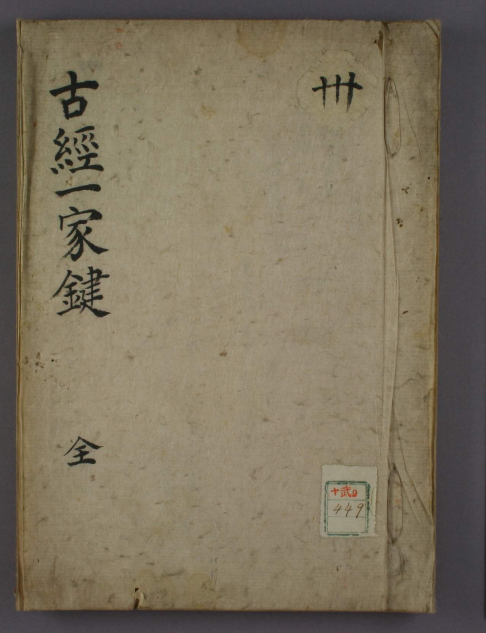 卅
古經一家鍵
全
449